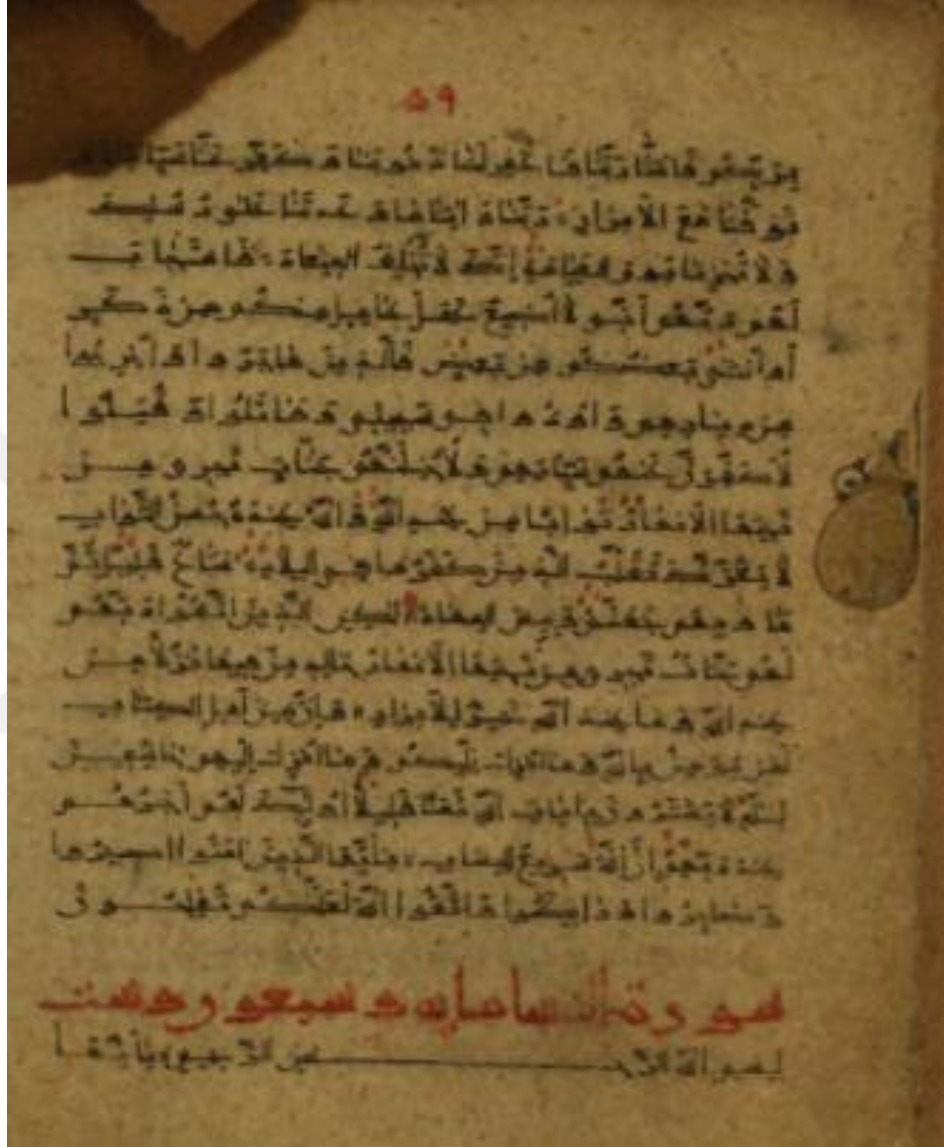 ٥٩
بربكم فامنا ربنا فاغفر لنا ذنوبنا وكفر عنا سياتنا و
توفنا مع الابرار ربنا واتنا ما وعدتنا على رسلك
ولا تخزنا يوم القيامة انك لا تخلف الميعاد فاستجاب
لهم ربهم أني لا أضيع عمل عامل منكم من ذكر
أو أنثى بعضكم من بعض فالذين هاجروا وأخرجوا
من ديارهم وأوذوا في سبيلي وقاتلوا وقتلوا
لأكفرن عنهم سياتهم ولأدخلنهم جنات تجري من
تحتها الأنهار ثوابا من عند الله والله عنده حسن الثواب
لا يغرنك تقلب الذين كفروا في البلاد متاع قليل ثم
مأويهم جهنم وبئس المهاد لكن الذين اتقوا ربهم
لهم جنات تجري من تحتها الأنهار خالدين فيها نزلا من
عند الله وما عند الله خير للأبرار وإن من أهل الكتاب
لمن يؤمن بالله وما أنزل إليكم وما أنزل إليهم خاشعين
لله لا يشترون بايات الله ثمنا قليلا أولئك لهم أجرهم
عند ربهم إن الله سريع الحساب يأيها الذين امنوا اصبروا
وصابروا ورابطوا واتقوا الله لعلكم تفلحون
سورة النسا ماية و سبعون وست
بسم الله الرحمن الرحيم يأيها